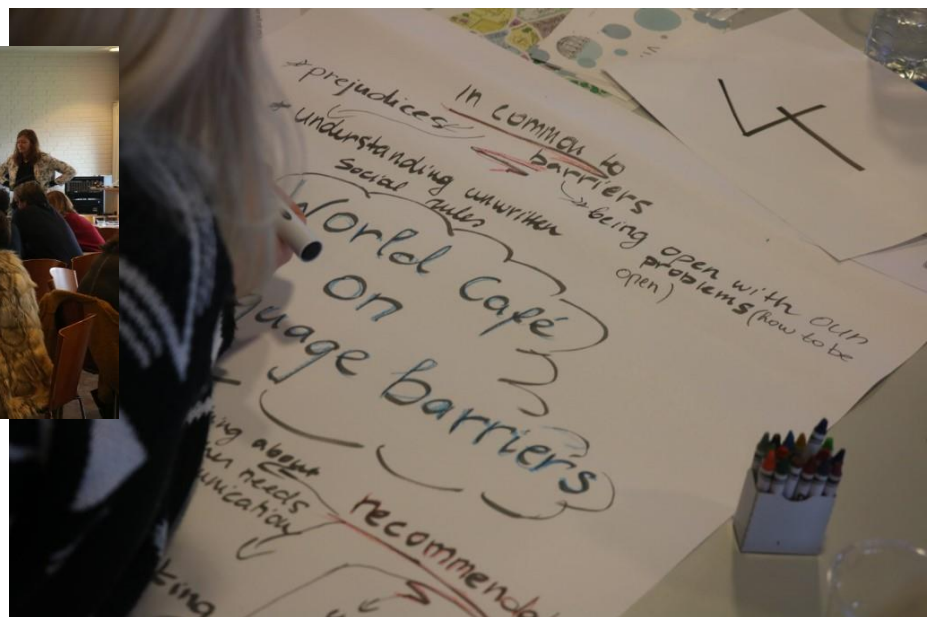 In common to
barriers
* prejudices
* understanding unwritten
social rules
being open with our
problems (how to be
open)
World Café
on
guage barriers
ing about
needs
recommenda